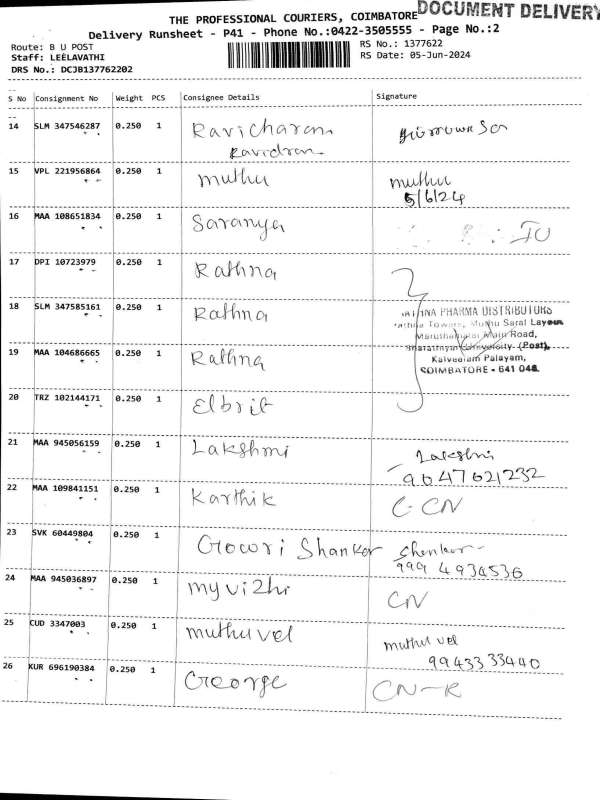 THE PROFESSIONAL COURIERS, COIMBATORE DOCUMENT DELIVERY
Delivery Runsheet - P41 - Phone No.:0422-3505555 - Page No.:2
Route: B U POST RS No.: 1377622
Staff: LEELAVATHI RS Date: 05-Jun-2024
DRS No.: DCJB137762202
S No Consignment No Weight PCS Consignee Details Signature
14 SLM 347546287 0.250 1 Ravicharan
Ravidran
15 VPL 221956864 0.250 1 muthu muthu
5/6/24
16 MAA 108651834 0.250 1 Saranya
17 DPI 10723979 0.250 1 Rathna
18 SLM 347585161 0.250 1 Rathna PHARMA DISTRIBUTORS
Towers, Muthu Saral Layout
Maruthamalai Main Road,
19 MAA 104686665 0.250 1 Rathna Bharathiyar University (Post),
Kalveeram Palayam,
COIMBATORE - 641 046.
20 TRZ 102144171 0.250 1 Elbrit
21 MAA 945056159 0.250 1 Lakshmi Lakshmi
9047621232
22 MAA 109841151 0.250 1 Karthik C-CN
23 SVK 60449804 0.250 1 Gowri Shankar Shenkar
999 4934536
24 MAA 945036897 0.250 1 myvizhi CN
25 CUD 3347003 0.250 1 muthuvel muthu vel
9943333440
26 KUR 696190384 0.250 1 George CN-R